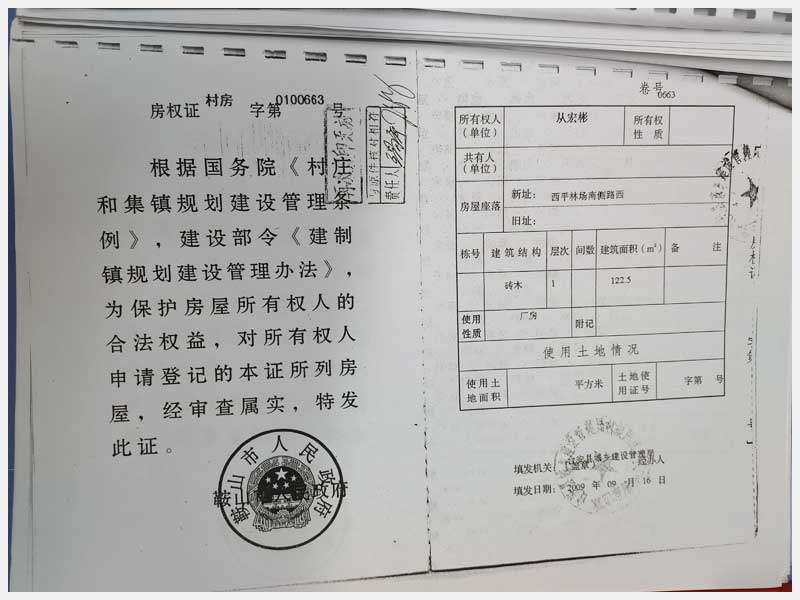 房权证 村房 字第 0100663 号
根据国务院《村庄
和集镇规划建设管理条
例》，建设部令《建制
镇规划建设管理办法》，
为保护房屋所有权人的
合法权益，对所有权人
申请登记的本证所列房
屋，经审查属实，特发
此证。
鞍山市人民政府
鞍山市人民政府
与原件核对相符
责任人
卷号
0663
所有权人（单位） 从宏彬 所有权性质
共有人（单位）
房屋座落 新址： 西平林场南侧路西
旧址：
栋号 建筑结构 层次 间数 建筑面积（m²） 备 注
砖木 1 122.5
使用性质 厂房 附记
使用土地情况
使用土地面积 平方米 土地使用证号 字第 号
填发机关：（盖章） 台安县城乡建设管理局 经办人
填发日期： 2009 年 09 月 16 日